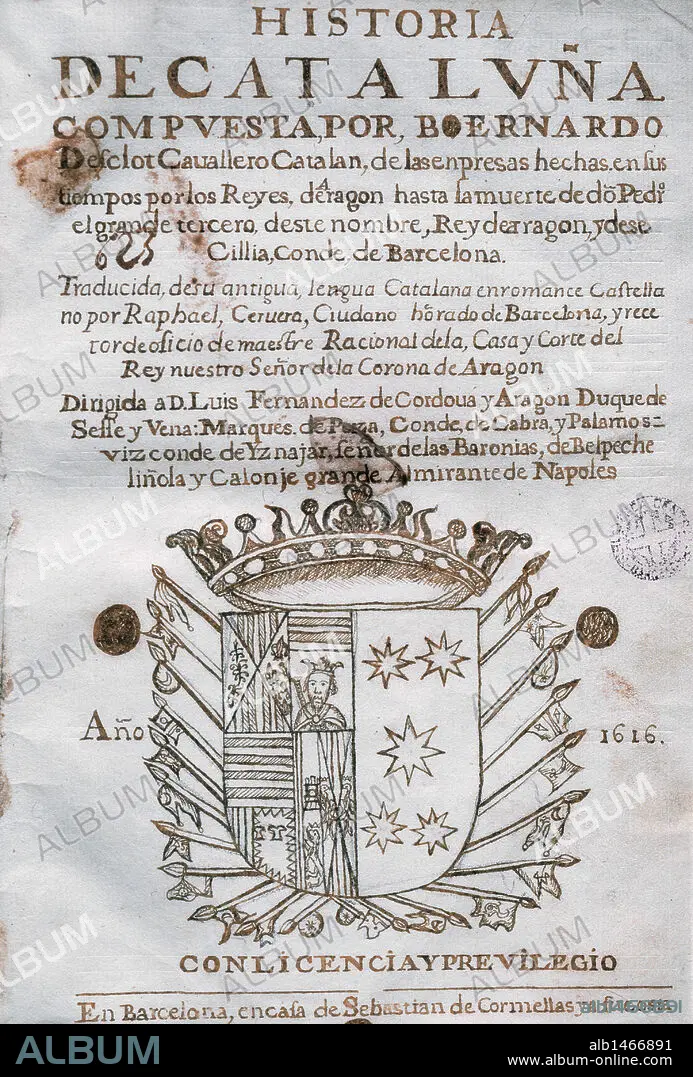 HISTORIA
DE CATALVÑA
COMPVESTA, POR, BERNARDO
Desclot Cauallero Catalan, de las enpresas hechas. en sus
tiempos por los Reyes, de Aragon hasta la muerte de dõ Pedrº
el grande tercero, deste nombre, Rey de arragon, y de se
Cillia, Conde de Barcelona.
623
Traducida, de su antigua, lengua Catalana en romance Castella
no por Raphael, Ceruera, Ciudano hõrado de Barcelona, y rece
tor de oficio de maestre Racional dela, Casa y Corte del
Rey nuestro Señor dela Corona de Aragon
Dirigida a D. Luis Fernandez de Cordoua y Aragon Duque de
Sesse y Vena: Marques. de Poza, Conde, de Cabra, y Palamos=
viz conde de Yznajar, señor de las Baronias, de Belpeche
liñola y Calonje grande Almirante de Napoles
Año 1616.
CON LICENCIA Y PREVILEGIO
En Barcelona, en casa de Sebastian de Cormellas y
ALBUM
alb1466891
www.album-online.com